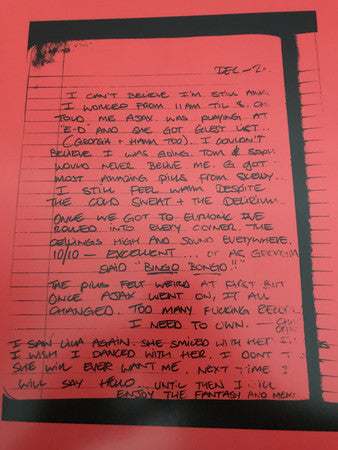 DEC - 2
I CAN'T BELIEVE I'M STILL
I WORKED FROM 11AM TIL 8. CH
TOLD ME AJAX WAS PLAYING AT
"E-D" AND SHE GOT GUEST LIST...
(GEORGIA + HAM TOO). I COULDN'T
BELIEVE I WAS GOING. TOM &
WOULD NEVER BELIVE ME. G GOT
MOST AMAZING PILLS FROM
I STILL FEEL WARM DESPITE
THE COLD SWEAT + THE DELIRIUM.
ONCE WE GOT TO WE
ROLLED INTO EVERY CORNER. THE
CEILINGS HIGH AND SOUND EVERYWHERE.
10/10 - EXCELLENT... OR AS GEORGIA
SAID "BINGO BONGO!!"
THE PILLS FELT WEIRD AT FIRST BUT
ONCE AJAX WENT ON, IT ALL
CHANGED. TOO MANY FUCKING
I NEED TO OWN. -
I SAW LILIA AGAIN. SHE SMILED WITH HER
I WISH I DANCED WITH HER. I DON'T T
SHE WILL EVER WANT ME. NEXT TIME I
WILL SAY HELLO... UNTIL THEN I
ENJOY THE FANTASY AND MEM